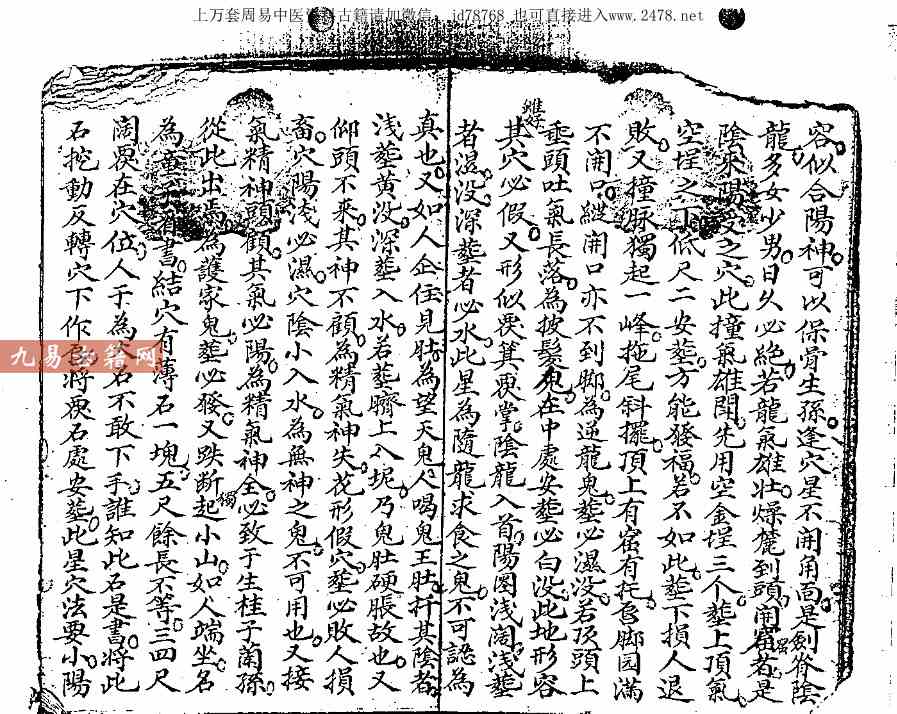 上万套周易中医 古籍请加微信 jd78768 也可直接进入www.2478.net
容似合陽神可以保骨生孫逢穴星不開角面是劍脊陰
龍多女少男日久必絕若龍氣雄壯燥麓到頭開窟者是
陰來陽受之穴此撞氣雄閗先用空金埕三个塟上頂氣
空埕之下低尺二安塟方能發福若不如此塟下損人退
敗又撞脉獨起一峰拖尾斜擺頂上有窟有托唇脚园滿
不開口縱開口亦不到脚為逆龍鬼塟必濕没若孩頭上
垂頭吐氣長落為披髮鬼在中處安塟必白没此地形容
其穴必假又形似畚箕硬掌陰龍入首陽圈浅濶浅塟
者濕没深塟者必水此星為隨龍求食之鬼不可認為
真也又如人企住見肚為望天鬼人喝鬼王肚扦其陰者
浅塟黄没深塟入水若塟臍上入坭乃鬼肚硬脹故也又
仰頭不來其神不顧為精氣神失花形假穴塟必敗人損
畜穴陽浅必濕穴陰小入水為無神之鬼不可用也又接
氣精神頭顧其氣必陽為精氣神全必致于生桂子蘭孫
從此出焉為護家鬼塟必發又跌断起小山如人端坐名
為童子看書結穴有薄石一塊五尺餘長不等三四尺
濶硬在穴位人于為 石不敢下手誰知此石是書將此
石挖動反轉穴下作 將硬石處安塟此星穴法要小陽
九易 籍网